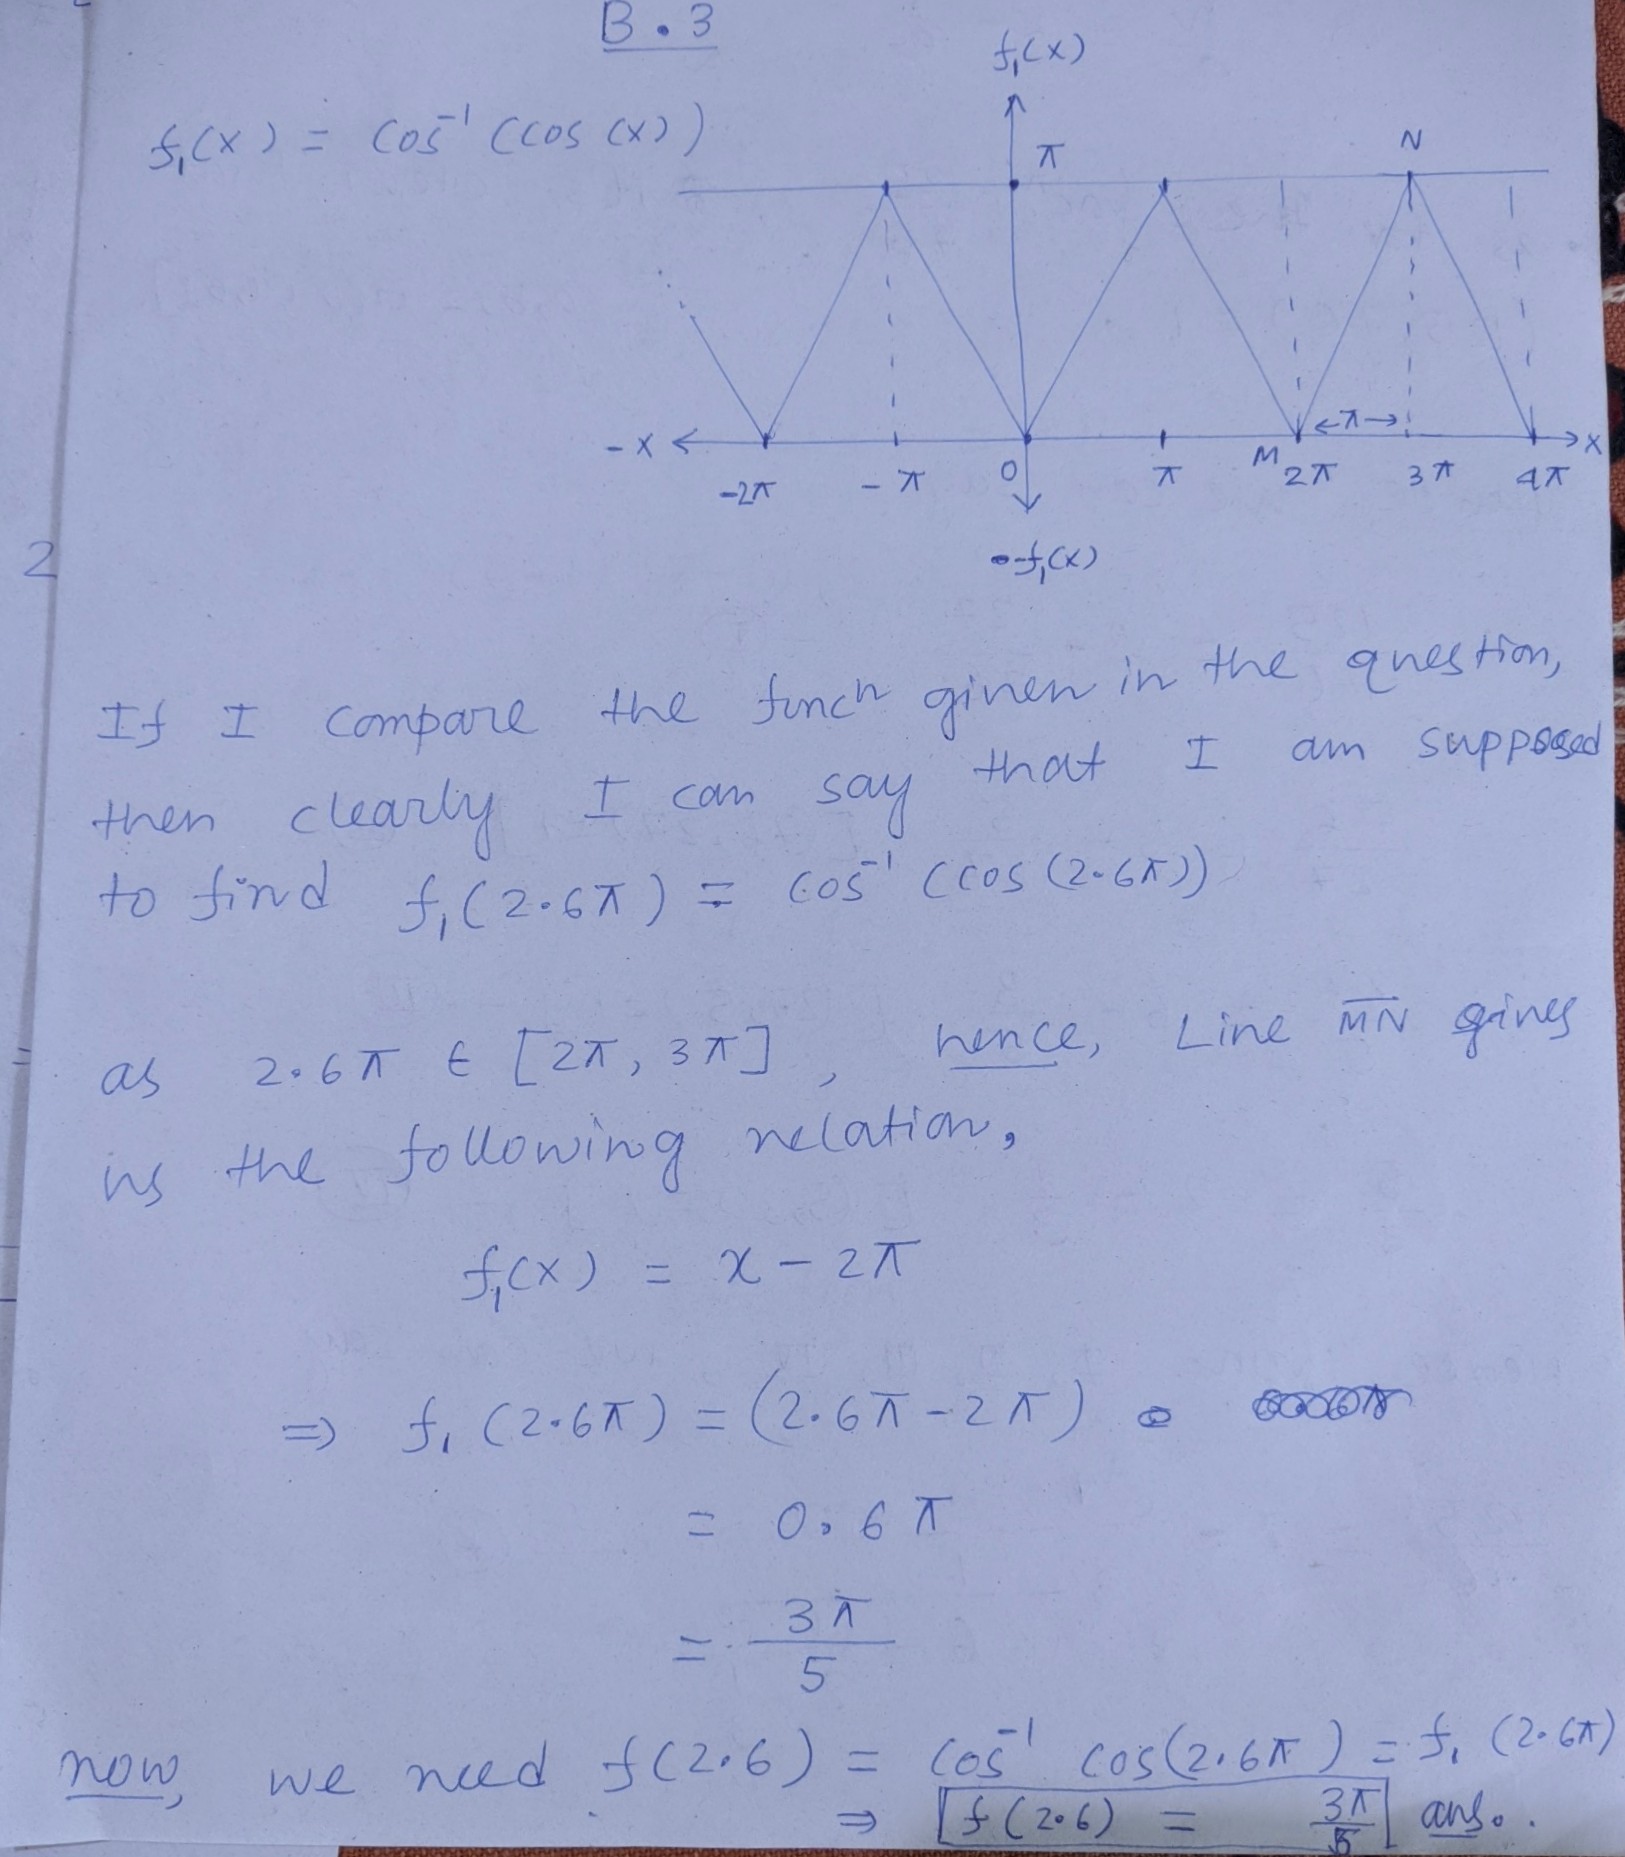 B.3
f₁(x)
f₁(x) = cos⁻¹ (cos (x))
π
N
-x
x
-2π -π 0 π M 2π 3π 4π
←π→
-f₁(x)
2
If I compare the funcⁿ given in the question,
then clearly I can say that I am supposed
to find f₁(2.6π) = cos⁻¹ (cos (2.6π))
as 2.6π ∈ [2π, 3π], hence, Line M̅N̅ gives
us the following relation,
f₁(x) = x - 2π
⇒ f₁ (2.6π) = (2.6π - 2π)
= 0.6π
= 3π/5
now, we need f(2.6) = cos⁻¹ cos(2.6π) = f₁ (2.6π)
⇒ f(2.6) = 3π/5 ans.